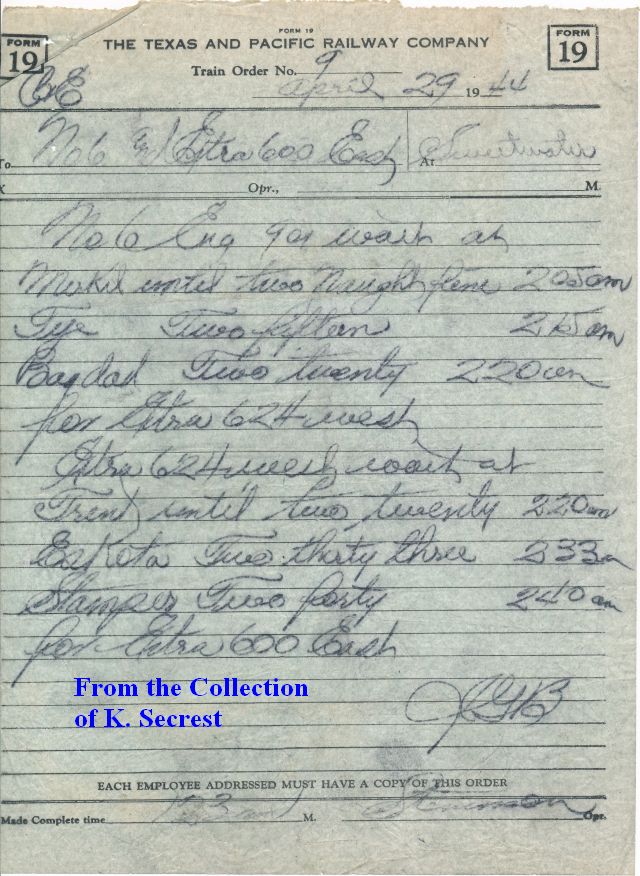 FORM 19
FORM 19
FORM 19
THE TEXAS AND PACIFIC RAILWAY COMPANY
Train Order No. 9
April 29 1944
C&E
To No 6 and Extra 600 East At Sweetwater
X Opr., M.
No 6 Eng 901 wait at
Merkel until two Naught five 205am
Tye Two fifteen 215am
Bagdad Two twenty 220am
for Extra 624 west
Extra 624 west wait at
Trent until two twenty 220am
Eskota Two thirty three 233a
Stamper Two forty 240am
for Extra 600 East
JGB
From the Collection
of K. Secrest
EACH EMPLOYEE ADDRESSED MUST HAVE A COPY OF THIS ORDER
Made Complete time M. Opr.